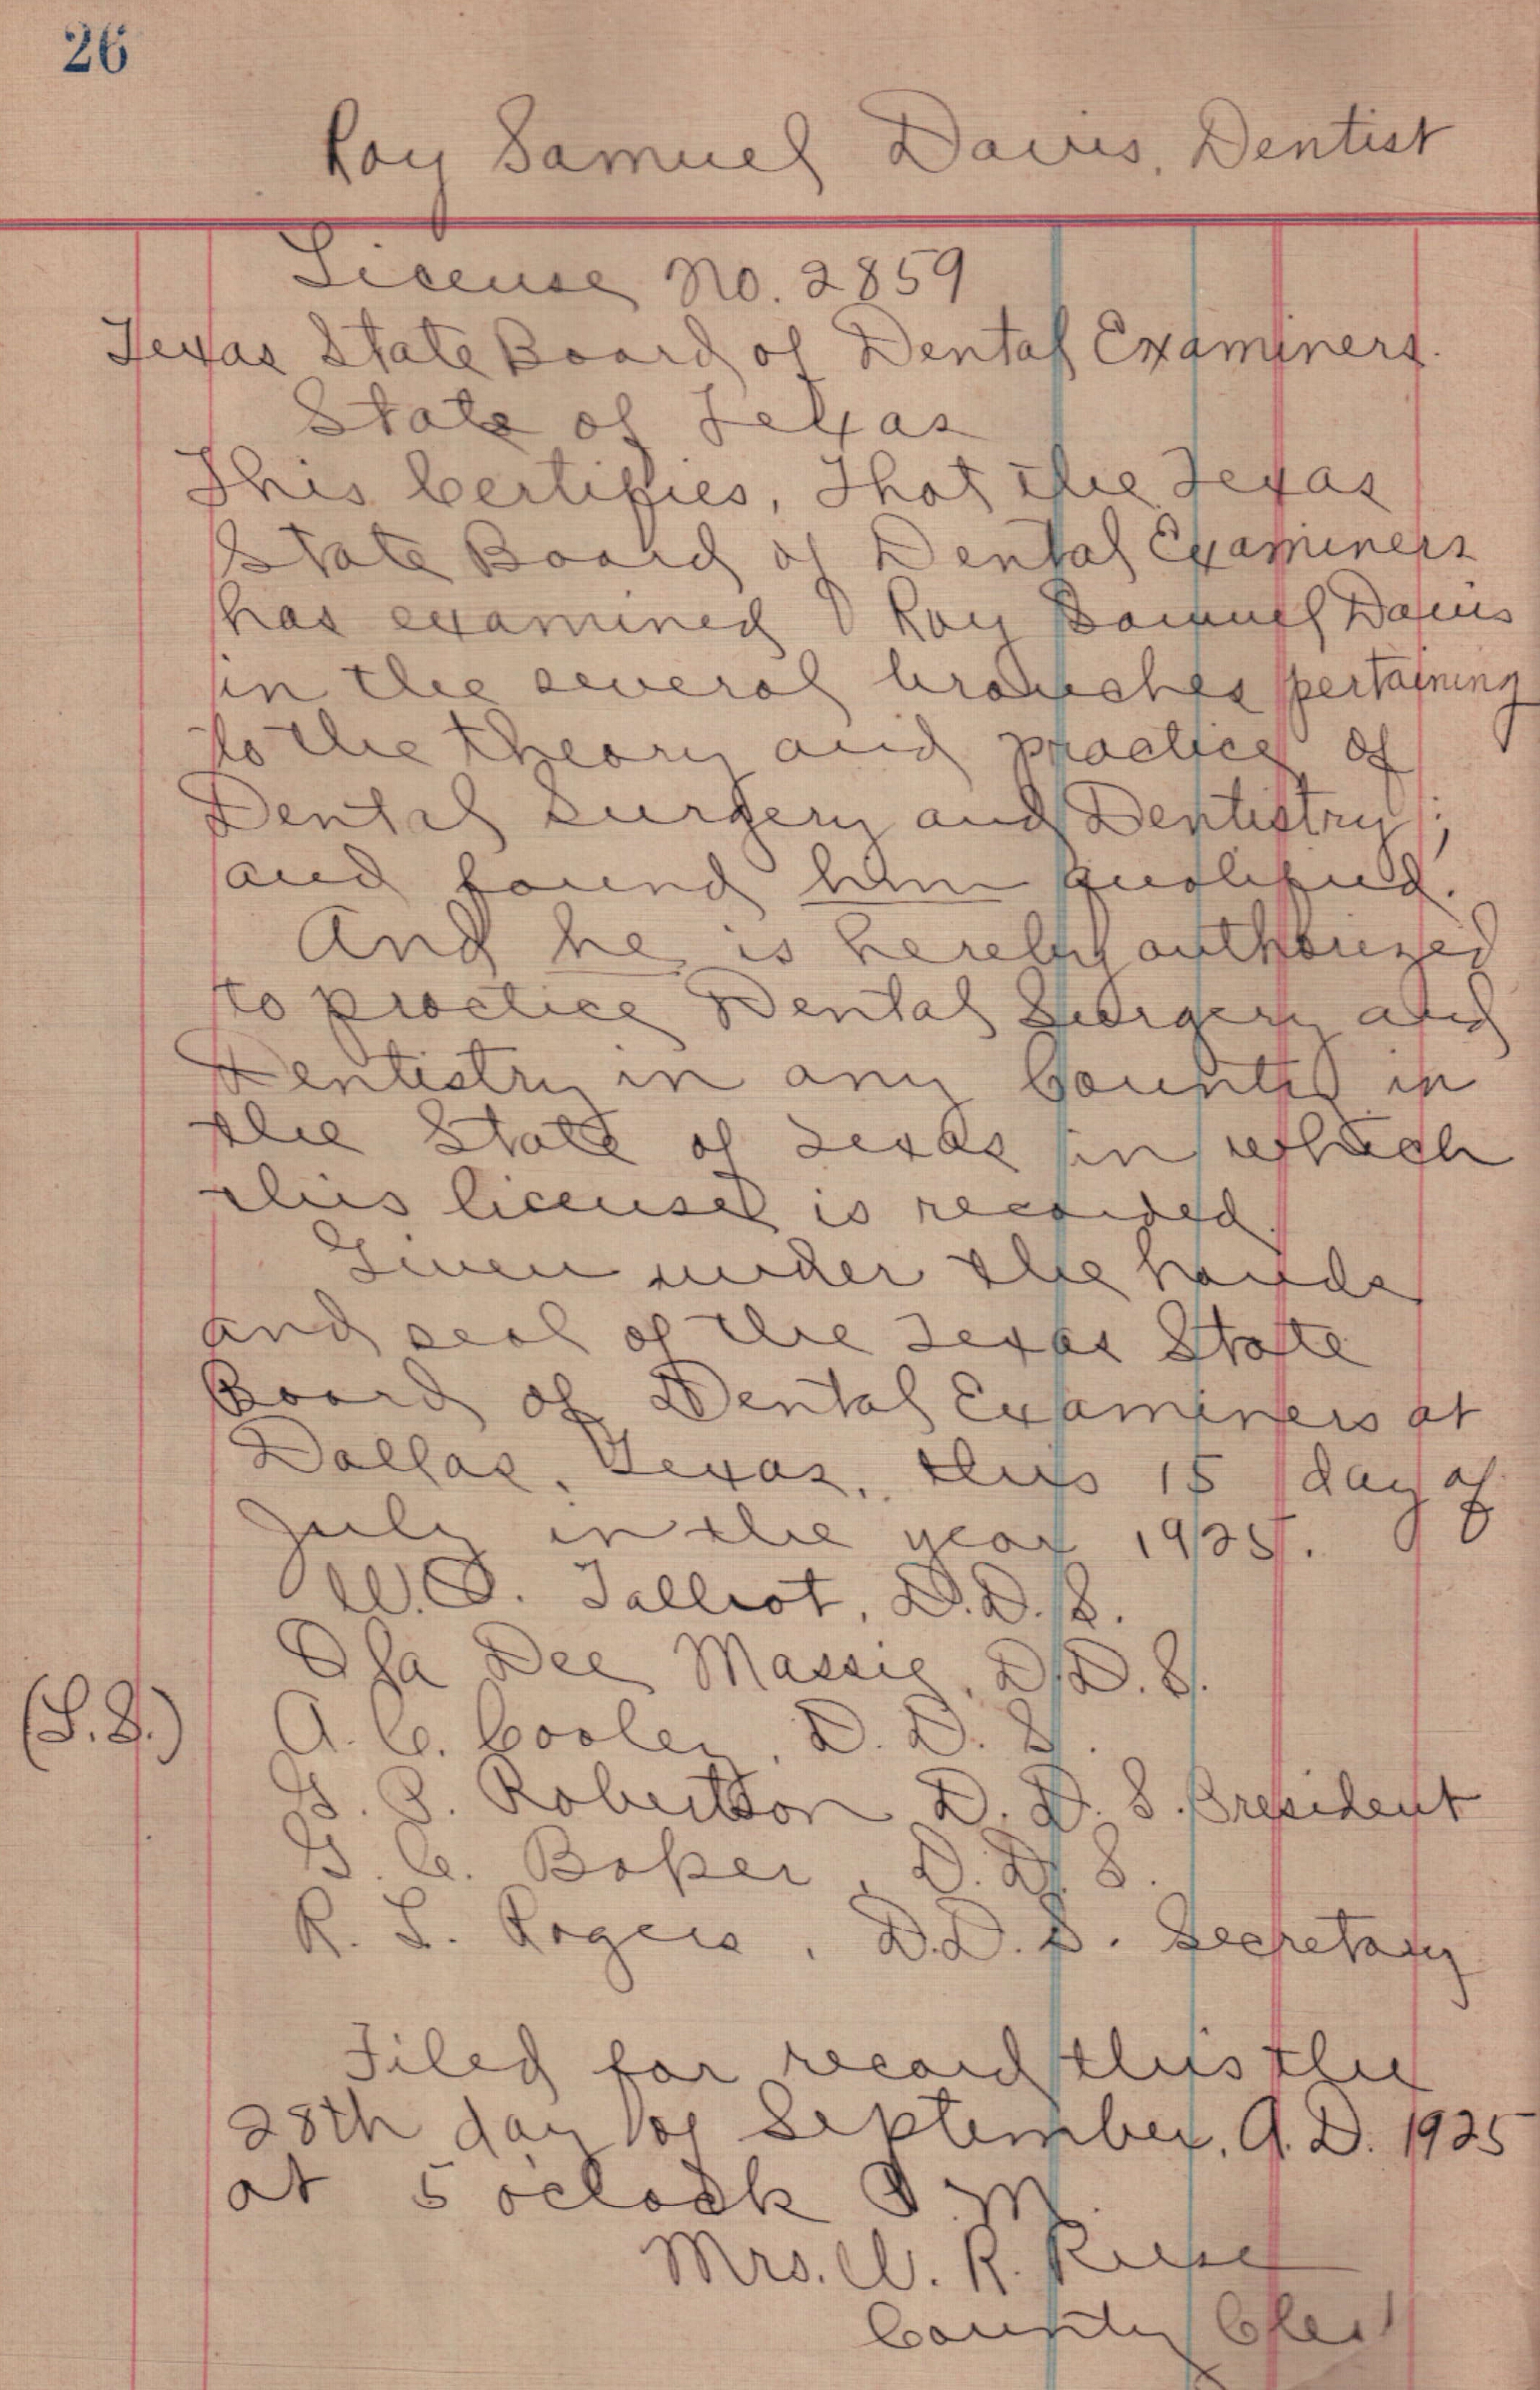 26
Roy Samuel Davis, Dentist
License No. 2859
Texas State Board of Dental Examiners.
State of Texas
This Certifies, That the Texas
State Board of Dental Examiners
has examined Roy Samuel Davis
in the several branches pertaining
to the theory and practice of
Dental Surgery and Dentistry;
and found him qualified.
And he is hereby authorized
to practice Dental Surgery and
Dentistry in any County in
the State of Texas in which
this license is recorded.
Given under the hands
and seal of the Texas State
Board of Dental Examiners at
Dallas, Texas, this 15 day of
July in the year 1925.
W.O. Talbot, D.D.S.
Ola Dee Massie, D.D.S.
(L.S.) A. C. Cooley, D. D. S.
G. P. Robertson D. D. S. President
G. C. Baker, D. D. S.
R. L. Rogers, D.D.S. Secretary
Filed for record this the
28th day of September, A.D. 1925
at 5 o'clock P.M.
Mrs. W. R. Reese
County Clerk